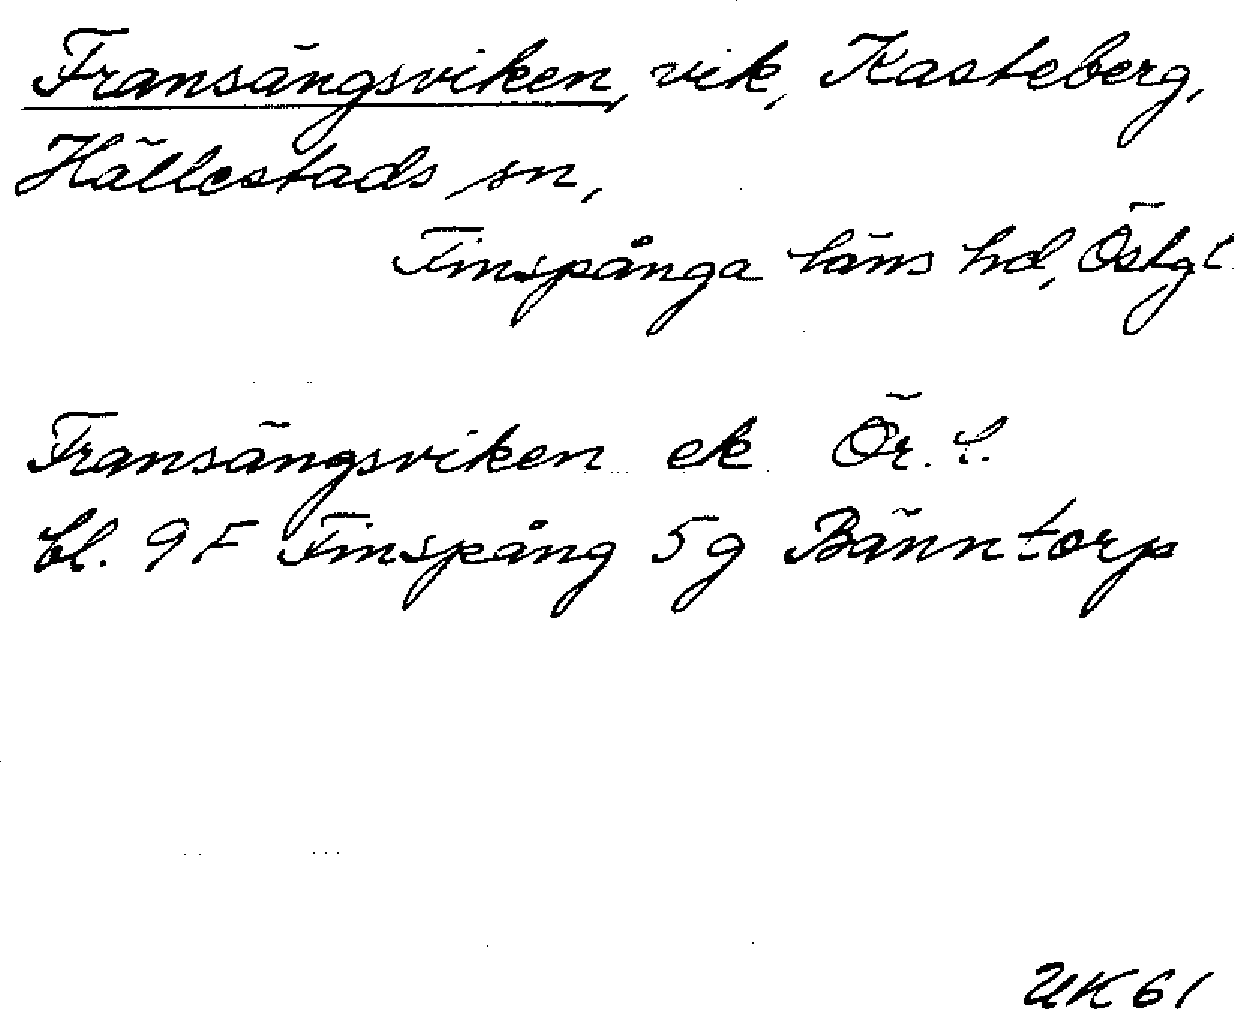 Fransängsviken, vik, Kasteberg,
Hällestads sn,
Finspånga läns hd, Östgl
Fransängsviken ek Ör. l.
bl. 9F Finspång 5g Bänntorp
UK61